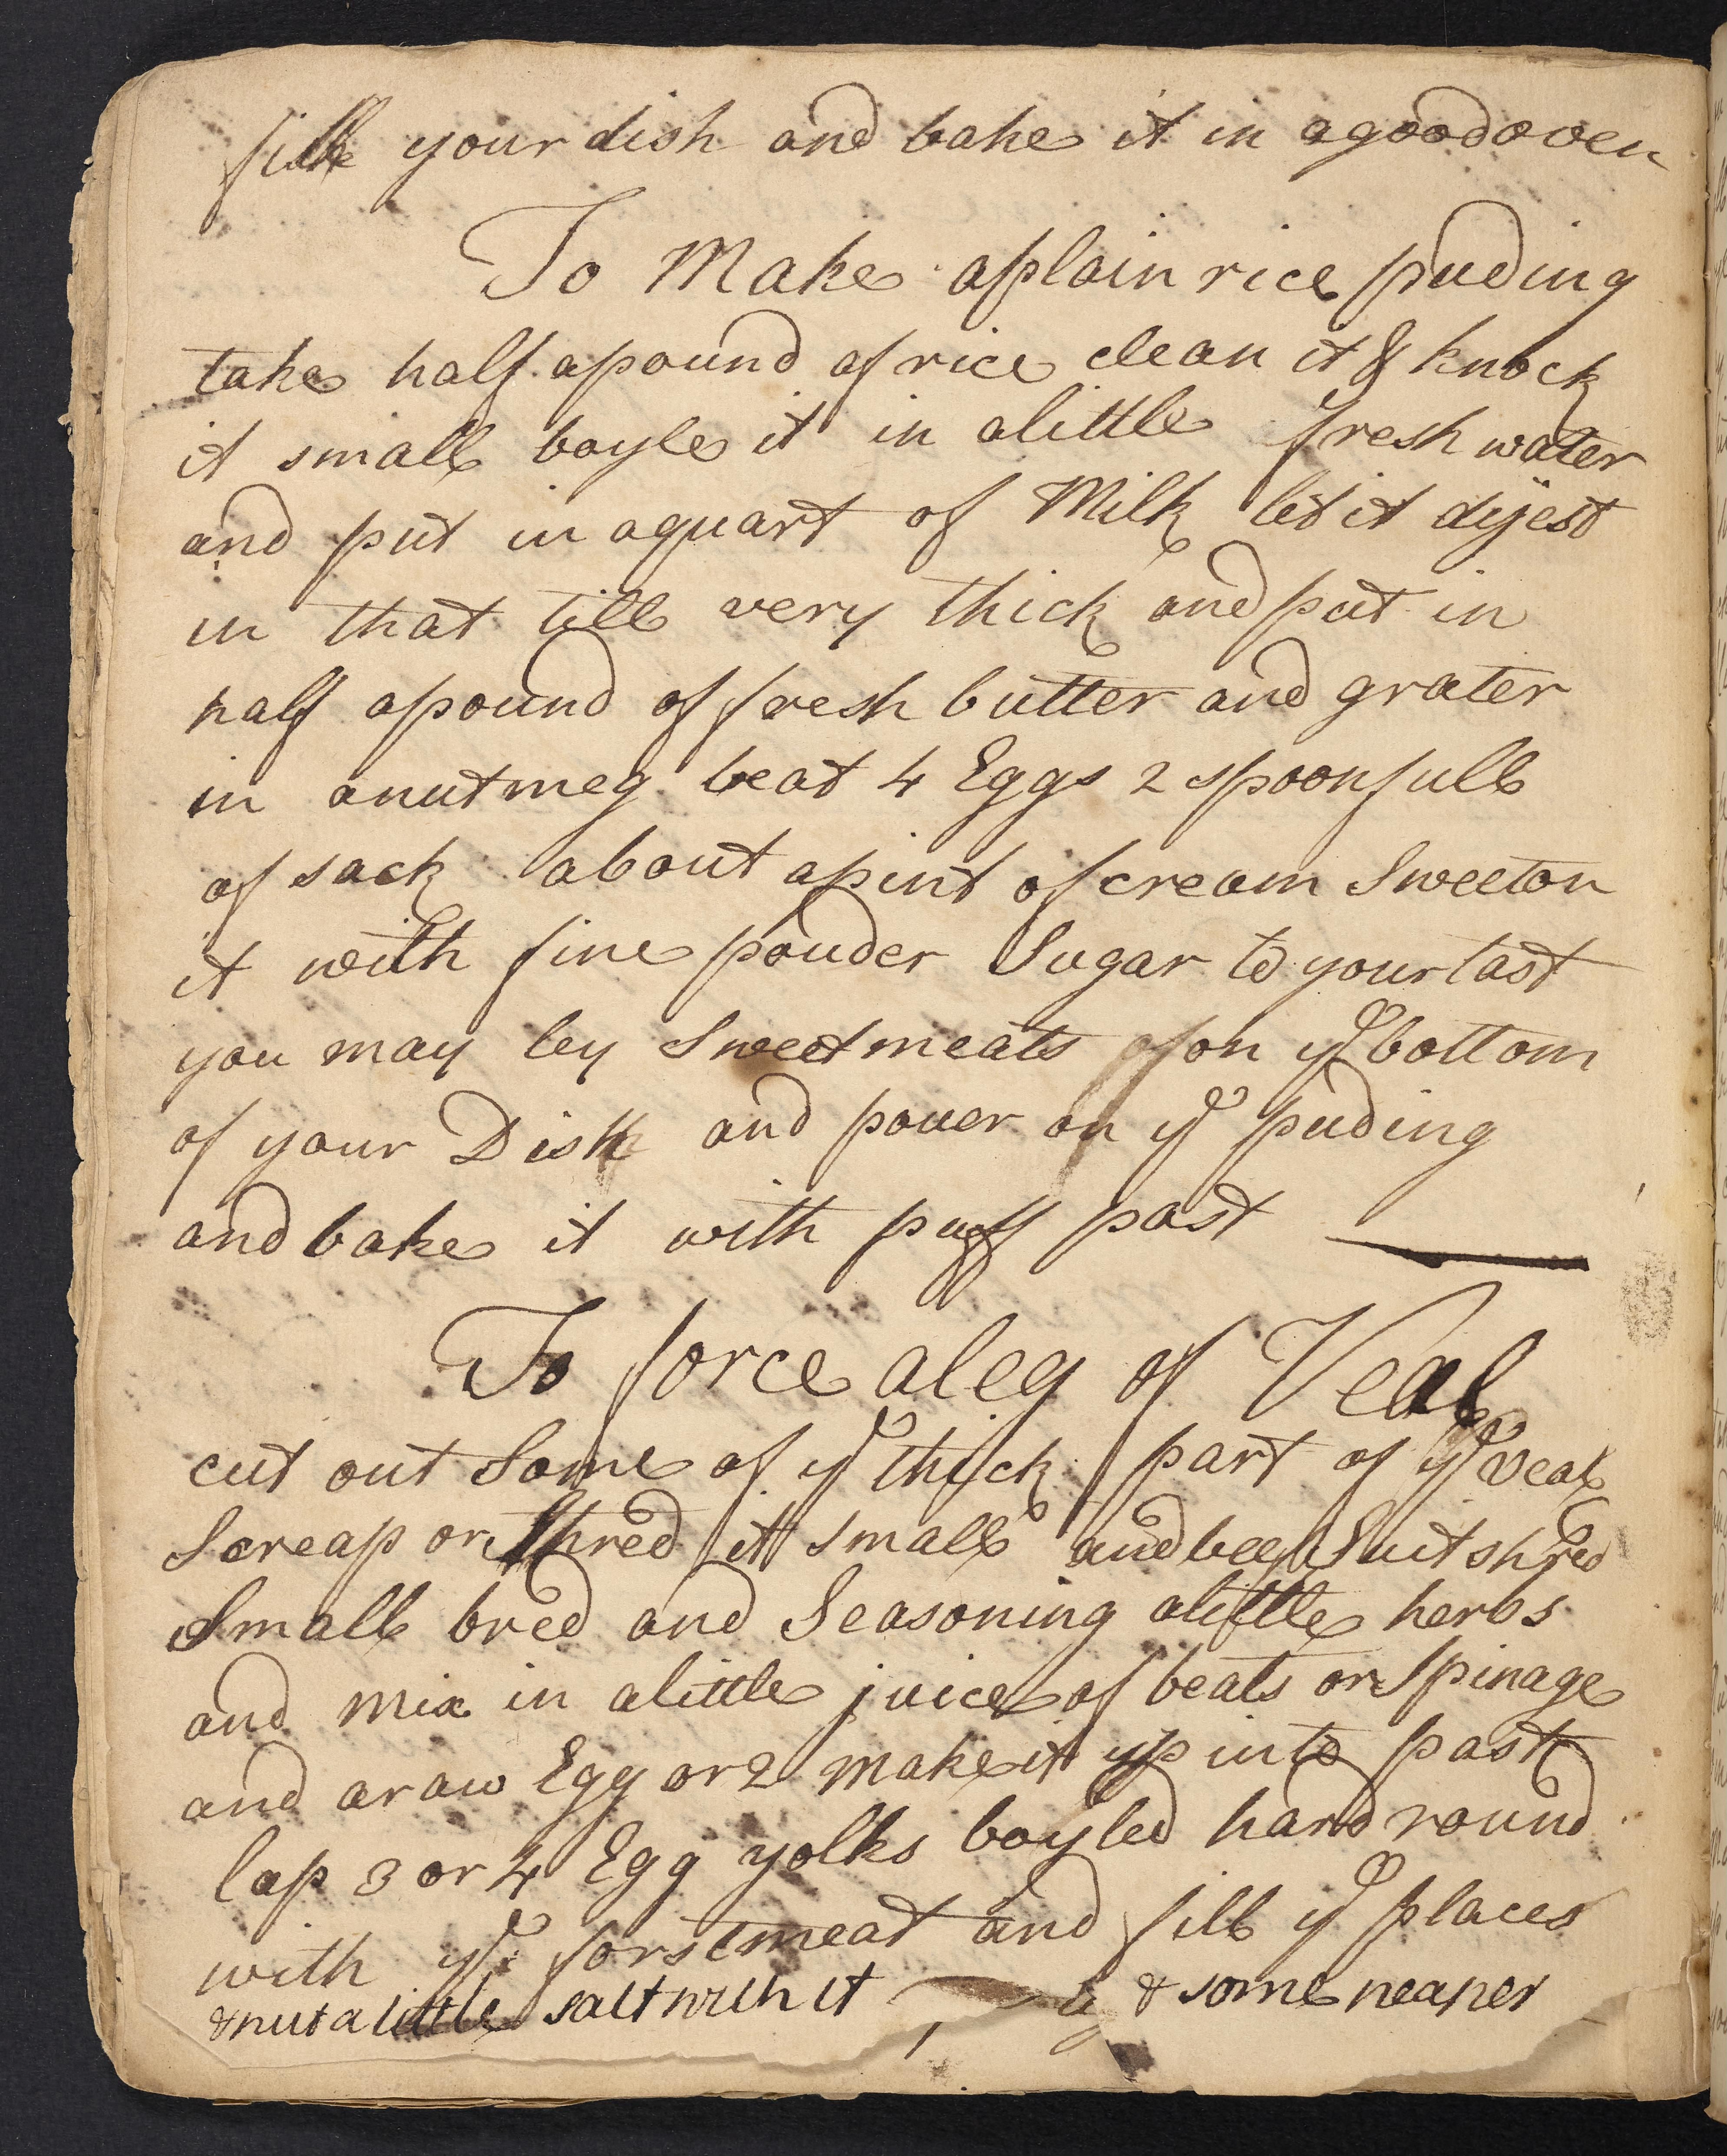 fill your dish and bake it in a good oven
To Make a plain rice puding
take half a pound of rice clean it & knock
it small boyle it in a little fresh water
and put in a quart of Milk let it dijest
in that till very thick and put in
half a pound of fresh butter and grater
in a nutmeg beat 4 Eggs 2 spoonfull
of sack about a pint of cream Sweeton
it with fine pouder Sugar to your tast
you may ley Sweetmeats on ye bottom
of your Dish and pouer on ye puding
and bake it with puff past
To force a leg of Veal
cut out Some of ye thick part of ye veal
Screap or Shred it small and beef Suit shred
Small bred and Seasoning a little herbs
and mix in a little juice of beats or Spinage
and a raw Egg or 2 make it up into past
lap 3 or 4 Egg yolks boyled hard round
with ye forstmeat and fill ye places
& put a little salt with it & some peaper